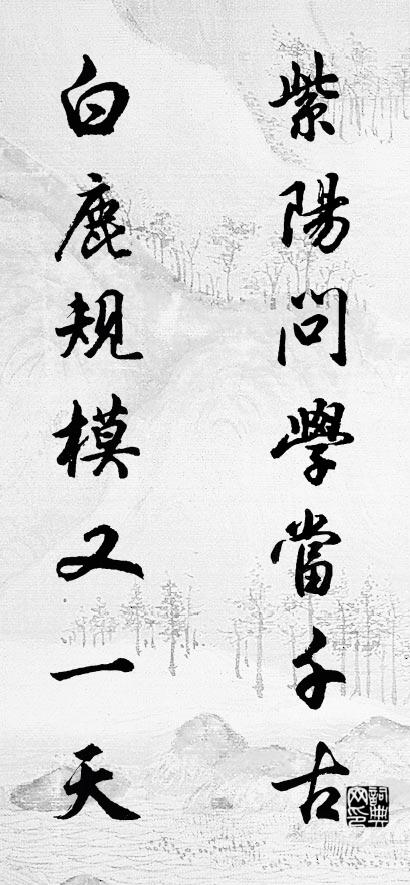 紫陽問學當千古
白鹿規模又一天
詞典網印